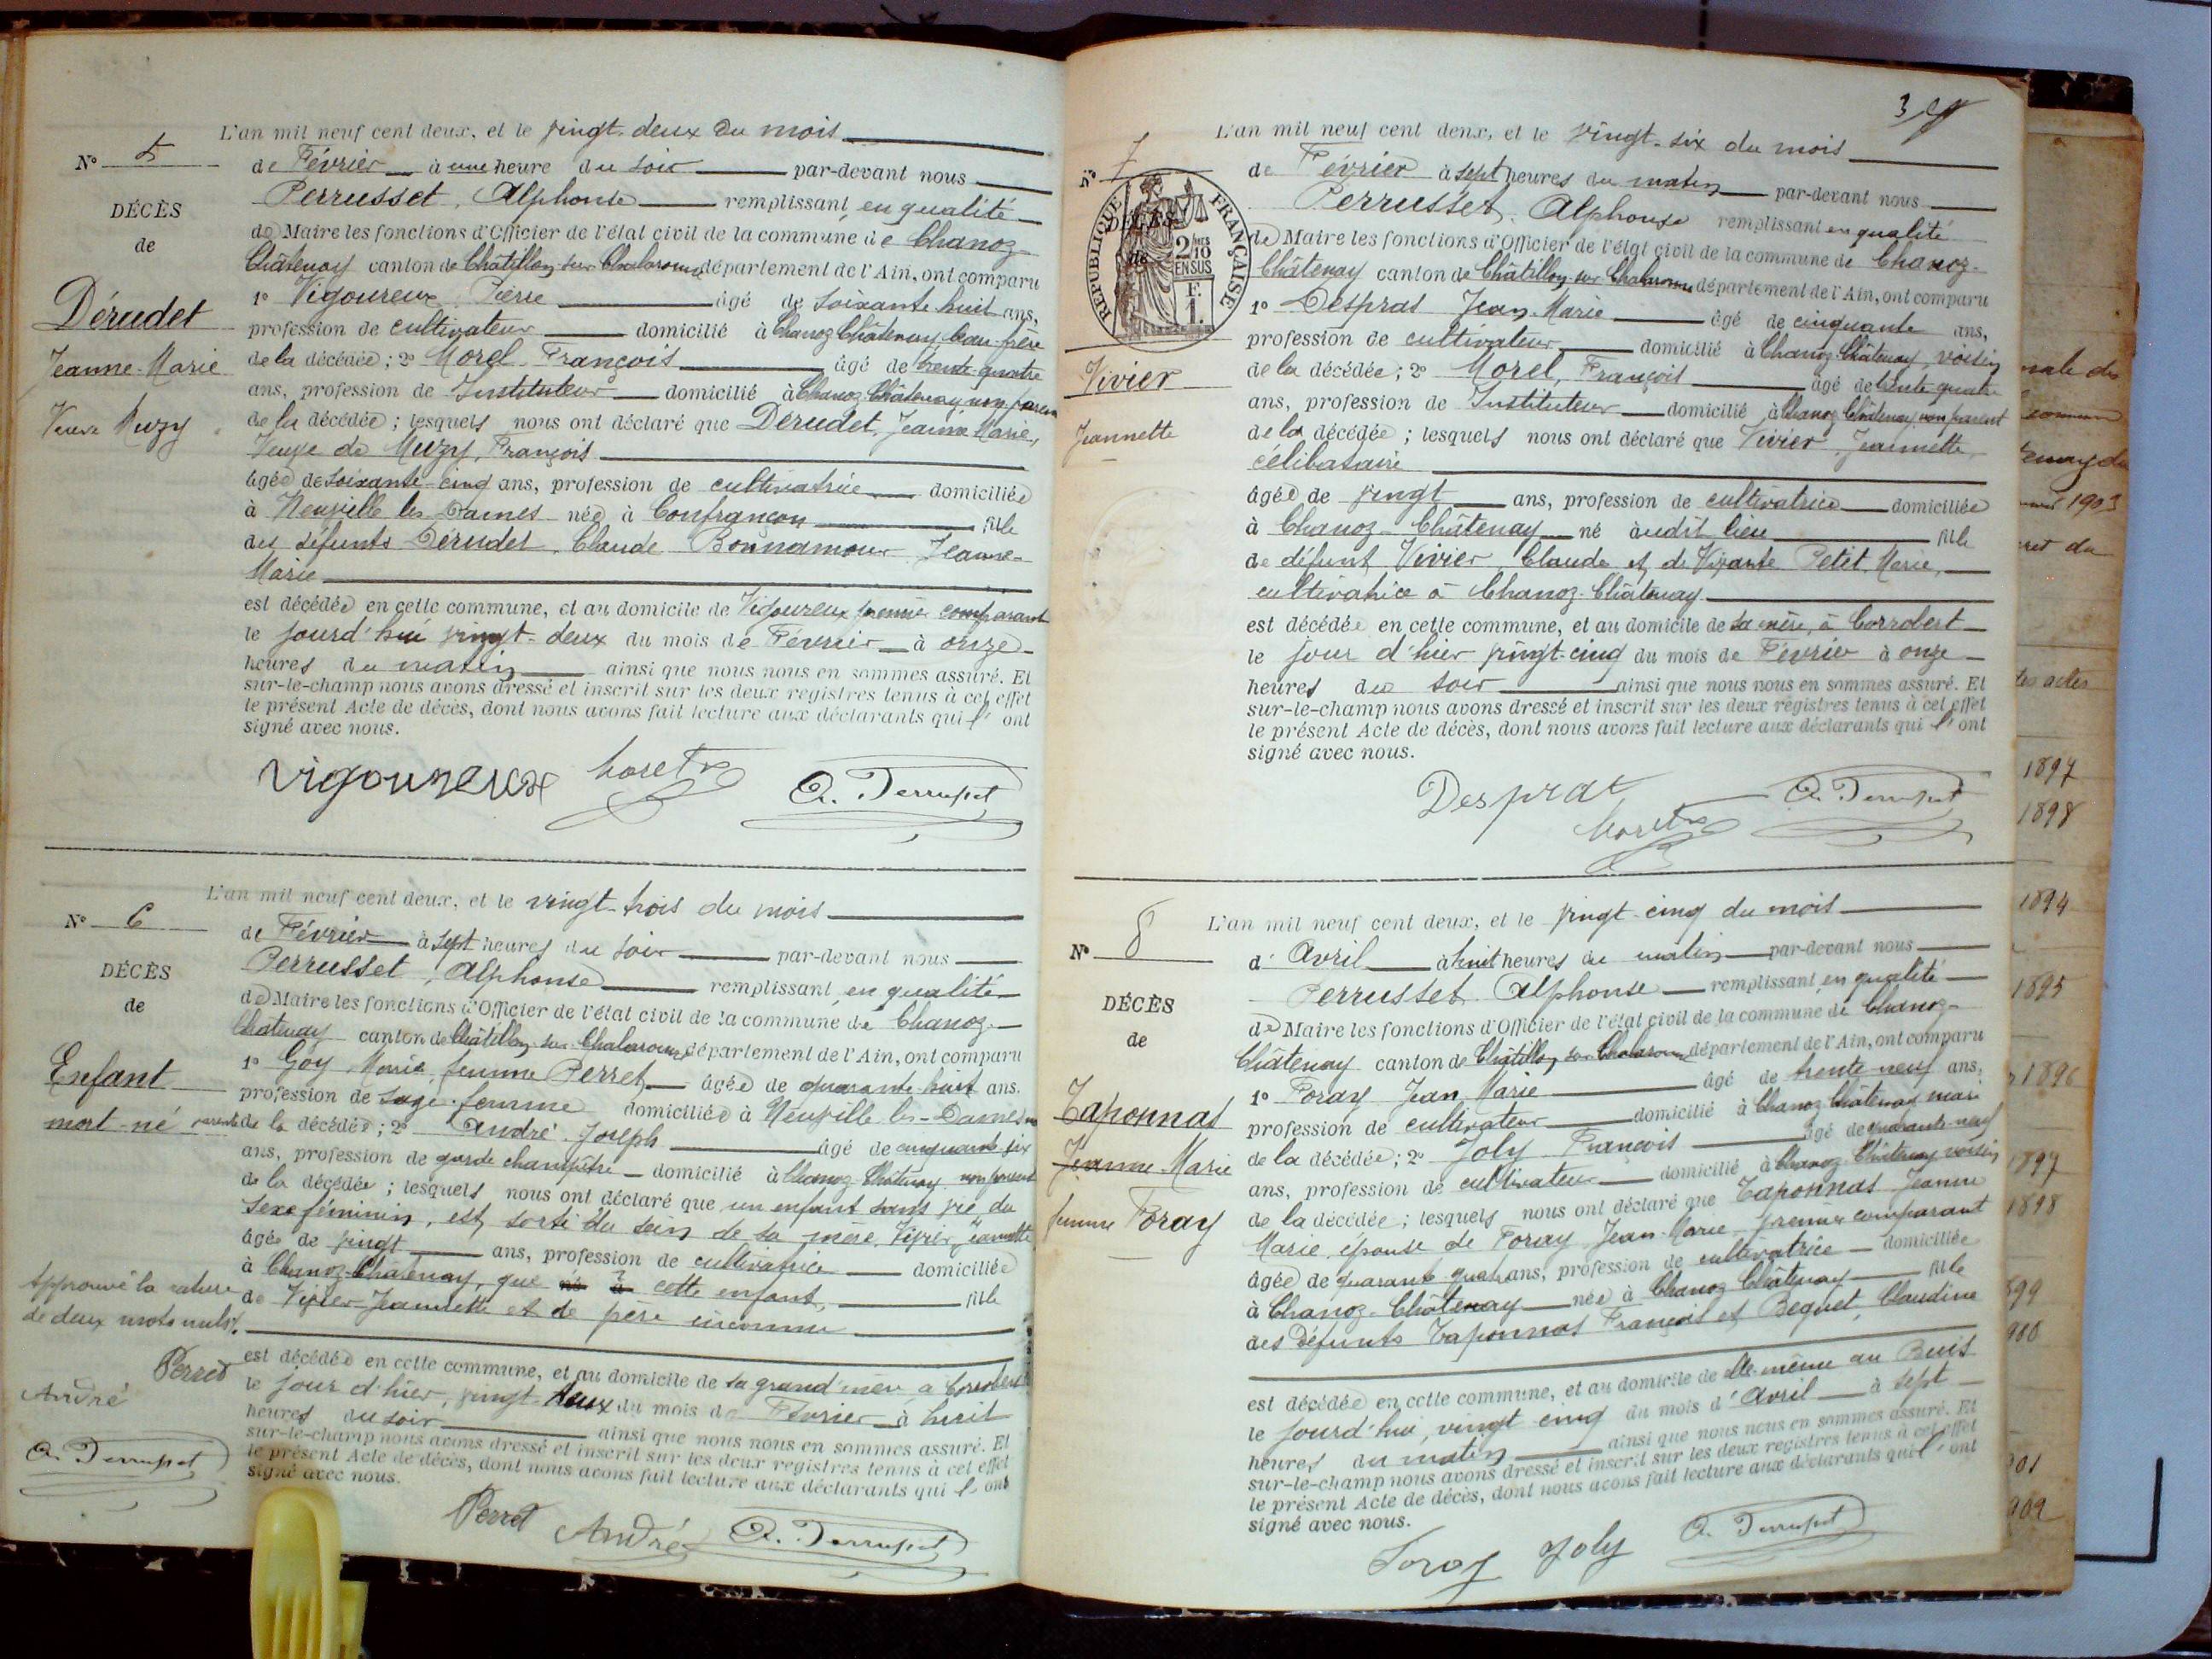 L'an mil neuf cent deux, et le vingt-deux du mois
N° 5
de Février à une heure du soir par-devant nous
Perrusset, Alphonse remplissant en qualité
DÉCÈS
de
de Maire les fonctions d'Officier de l'état civil de la commune de Chanoz-
Châtenay canton de Châtillon sur Chalaronne département de l'Ain, ont comparu
Dérudet
Jeanne-Marie
Veuve Muzy
1° Vigoureux Pierre âgé de soixante huit ans,
profession de cultivateur domicilié à Chanoz Châtenay, beau-frère
de la décédée; 2° Morel François âgé de trente-quatre
ans, profession de Instituteur domicilié à Chanoz Châtenay non parent
de la décédée; lesquels nous ont déclaré que Dérudet, Jeanne Marie,
Veuve de Muzy, François
âgée de soixante-cinq ans, profession de cultivatrice domiciliée
à Neuville les Dames née à Confrançon fille
des défunts Dérudet, Claude Bonnamour Jeanne-
Marie
est décédée en cette commune, et au domicile de Vigoureux premier comparant
le jourd'hui vingt-deux du mois de Février à onze
heures du matin ainsi que nous nous en sommes assuré. Et
sur-le-champ nous avons dressé et inscrit sur les deux registres tenus à cet effet
le présent Acte de décès, dont nous avons fait lecture aux déclarants qui l'ont
signé avec nous.
Vigoureux Morel A. Perrusset
L'an mil neuf cent deux, et le vingt-trois du mois
N° 6
de Février à sept heures du soir par-devant nous
Perrusset, Alphonse remplissant en qualité
DÉCÈS
de
de Maire les fonctions d'Officier de l'état civil de la commune de Chanoz-
Châtenay canton de Châtillon sur Chalaronne département de l'Ain, ont comparu
Enfant
mort-né
1° Goy Marie, femme Perret âgée de quarante-huit ans.
profession de sage-femme domiciliée à Neuville les-Dames non
parente de la décédée; 2° André Joseph âgé de cinquante six
ans, profession de garde champêtre domicilié à Chanoz-Châtenay non parent
de la décédée; lesquels nous ont déclaré que un enfant sans vie du
sexe féminin, est sorti du sein de sa mère Vivier Jeannette
âgée de vingt ans, profession de cultivatrice domiciliée
à Chanoz-Châtenay, que né à cette enfant, fille
de Vivier Jeannette et de père inconnu
Approuvé la rature
de deux mots nuls.
Perret
André
A. Perrusset
est décédée en cette commune, et au domicile de sa grand'mère à Corrobert
le jour d'hier, vingt-deux du mois de Février à huit
heures du soir ainsi que nous nous en sommes assuré. Et
sur-le-champ nous avons dressé et inscrit sur les deux registres tenus à cet effet
le présent Acte de décès, dont nous avons fait lecture aux déclarants qui l'ont
signé avec nous.
Perret André A. Perrusset
3
L'an mil neuf cent deux, et le vingt-six du mois
N° 7
de Février à sept heures du matin par-devant nous
Perrusset, Alphonse remplissant en qualité
DÉCÈS
de
RÉPUBLIQUE FRANÇAISE
2/10
EN SUS
F.
1.
de Maire les fonctions d'Officier de l'état civil de la commune de Chanoz-
Châtenay canton de Châtillon sur Chalaronne département de l'Ain, ont comparu
Vivier
Jeannette
1° Despras Jean Marie âgé de cinquante ans,
profession de cultivateur domicilié à Chanoz-Châtenay, voisin
de la décédée; 2° Morel, François âgé de trente-quatre
ans, profession de Instituteur domicilié à Chanoz-Châtenay non parent
de la décédée; lesquels nous ont déclaré que Vivier, Jeannette
célibataire
âgée de vingt ans, profession de cultivatrice domiciliée
à Chanoz-Châtenay né audit lieu fille
de défunt Vivier, Claude et de Vivante Petit, Marie,
cultivatrice à Chanoz-Châtenay
est décédée en cette commune, et au domicile de sa mère, à Corrobert
le jour d'hier vingt-cinq du mois de Février à onze
heures du soir ainsi que nous nous en sommes assuré. Et
sur-le-champ nous avons dressé et inscrit sur les deux registres tenus à cet effet
le présent Acte de décès, dont nous avons fait lecture aux déclarants qui l'ont
signé avec nous.
Desprat Morel A. Perrusset
L'an mil neuf cent deux, et le vingt-cinq du mois
N° 8
d'Avril à huit heures du matin par-devant nous
Perrusset Alphonse remplissant en qualité
DÉCÈS
de
de Maire les fonctions d'Officier de l'état civil de la commune de Chanoz-
Châtenay canton de Châtillon sur Chalaronne département de l'Ain, ont comparu
Taponnas
Jeanne Marie
femme Foray
1° Foray Jean Marie âgé de trente-neuf ans,
profession de cultivateur domicilié à Chanoz Châtenay mari
de la décédée; 2° Joly François âgé de quarante-neuf
ans, profession de cultivateur domicilié à Chanoz-Châtenay voisin
de la décédée; lesquels nous ont déclaré que Taponnas Jeanne
Marie, épouse de Foray Jean-Marie premier comparant
âgée de quarante-quatre ans, profession de cultivatrice domiciliée
à Chanoz-Châtenay née à Chanoz Châtenay fille
des défunts Taponnas François et Béguet, Claudine
est décédée en cette commune, et au domicile de elle-même au Buis
le jourd'hui, vingt cinq du mois d'Avril à sept
heures du matin ainsi que nous nous en sommes assuré. Et
sur-le-champ nous avons dressé et inscrit sur les deux registres tenus à cet effet
le présent Acte de décès, dont nous avons fait lecture aux déclarants qui l'ont
signé avec nous.
Foray Joly A. Perrusset
1903
1897
1898
1894
1895
1896
1897
1898